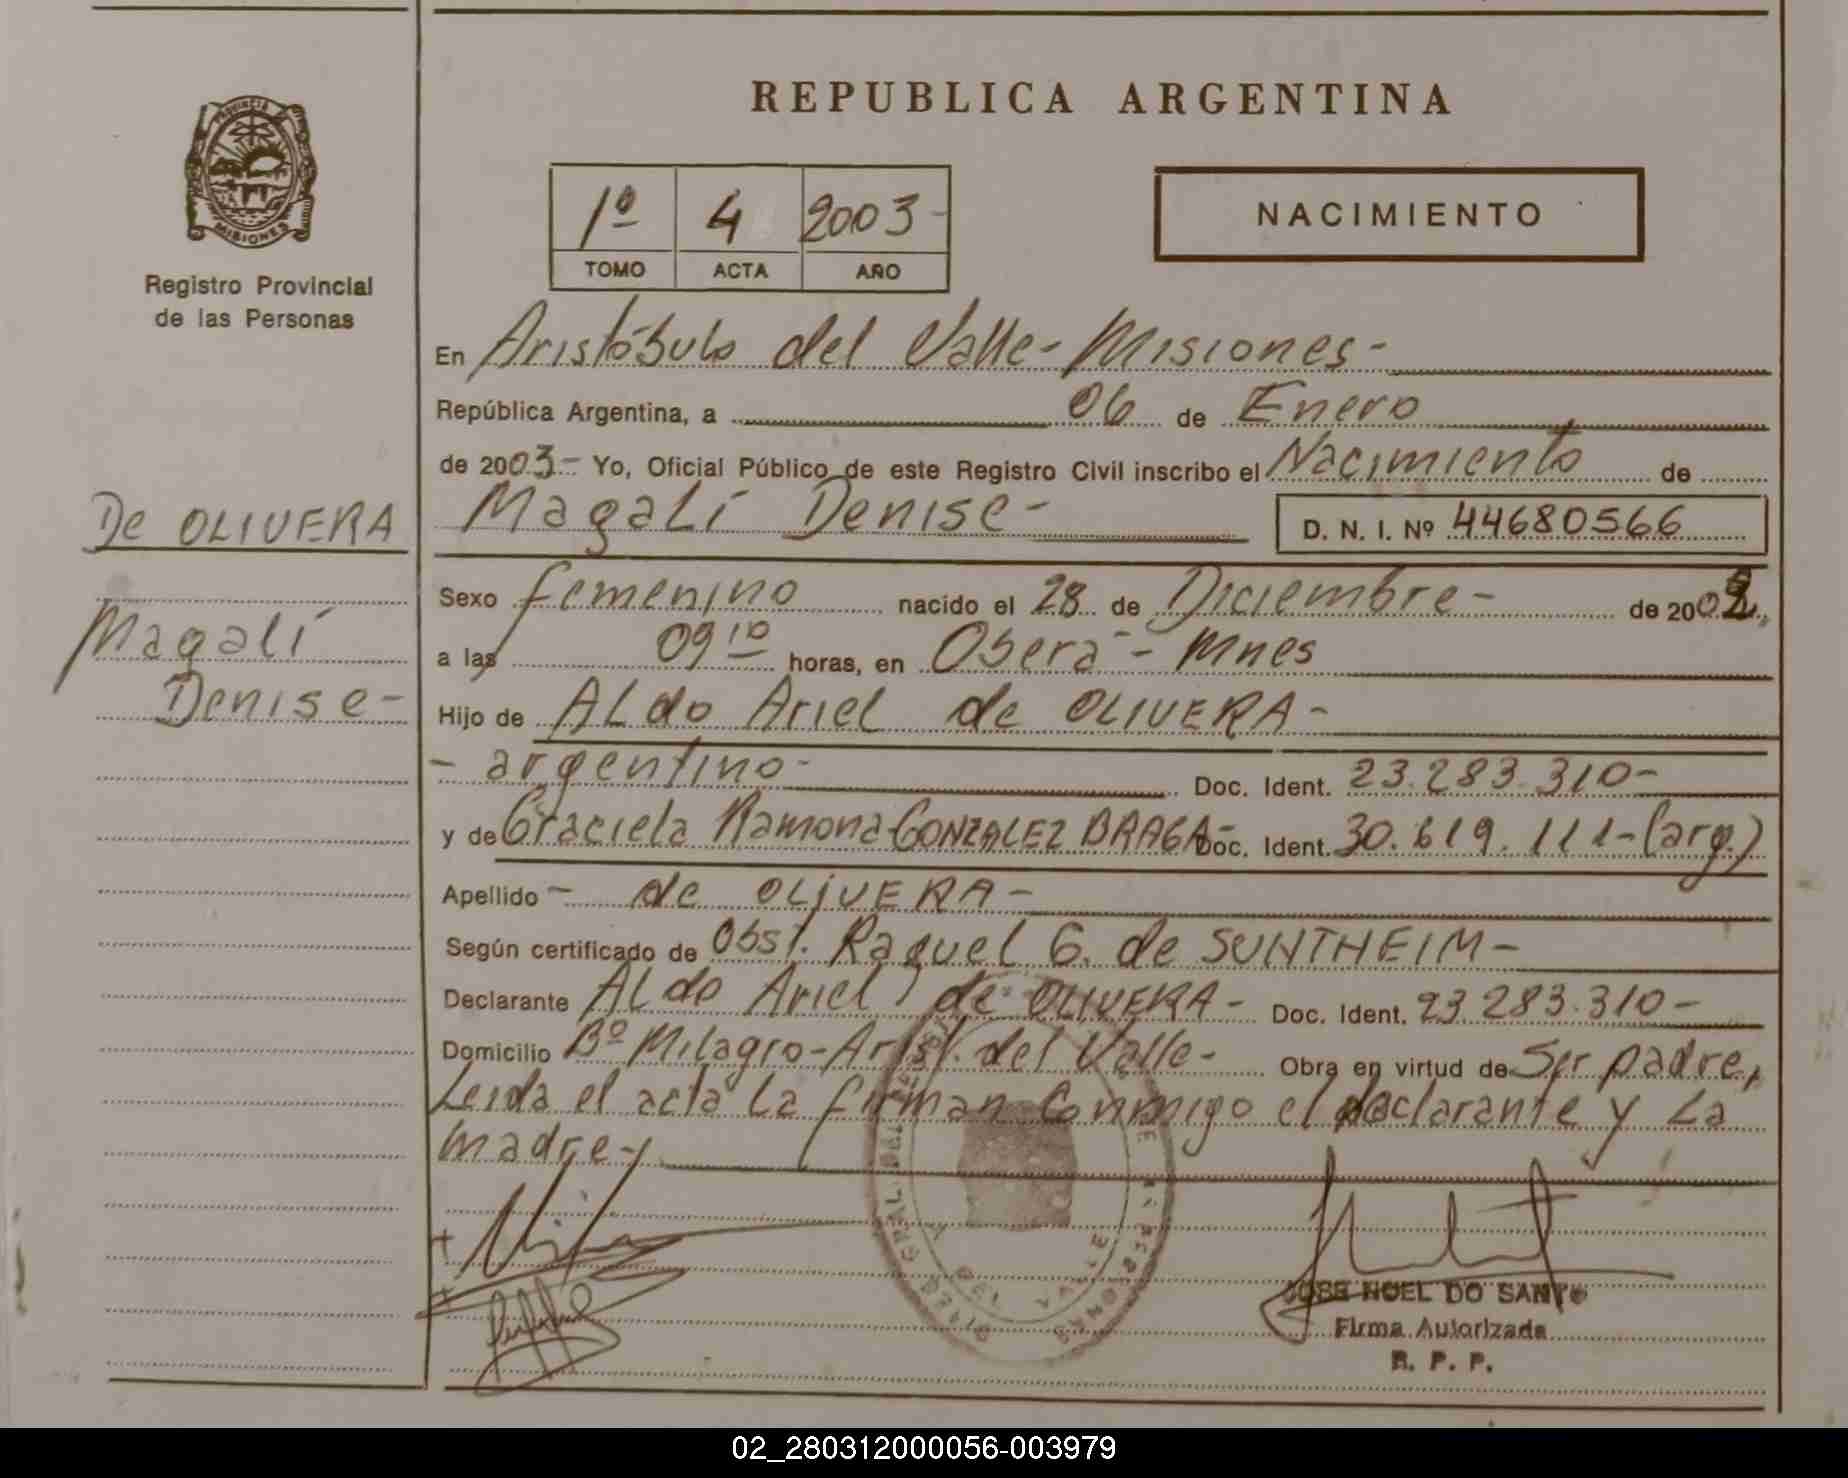 REPUBLICA ARGENTINA
PROVINCIA DE
MISIONES
Registro Provincial
de las Personas
1º 4 2003-
TOMO ACTA AÑO
NACIMIENTO
En Aristóbulo del Valle - Misiones-
República Argentina, a 06 de Enero
de 2003- Yo, Oficial Público de este Registro Civil inscribo el Nacimiento de
De OLIVERA
Magalí Denise-
D. N. I. Nº 44680566
Magalí
Denise-
Sexo femenino nacido el 28 de Diciembre- de 2002
a las 09 10 horas, en Oberá - Mnes
Hijo de Aldo Ariel de OLIVERA-
- argentino- Doc. Ident. 23.283.310-
y de Graciela Ramona GONZALEZ BRAGA- Doc. Ident. 30.619.111-(arg.)
Apellido - de OLIVERA-
Según certificado de Obst. Raquel G. de SUNTHEIM-
Declarante Aldo Ariel de OLIVERA- Doc. Ident. 23.283.310-
Domicilio Bº Milagro-Arist. del Valle- Obra en virtud de Ser padre,
Leida el acta la firman conmigo el declarante y la
madre-
JOSE NOEL DO SANTO
Firma Autorizada
R. P. P.
02_280312000056-003979